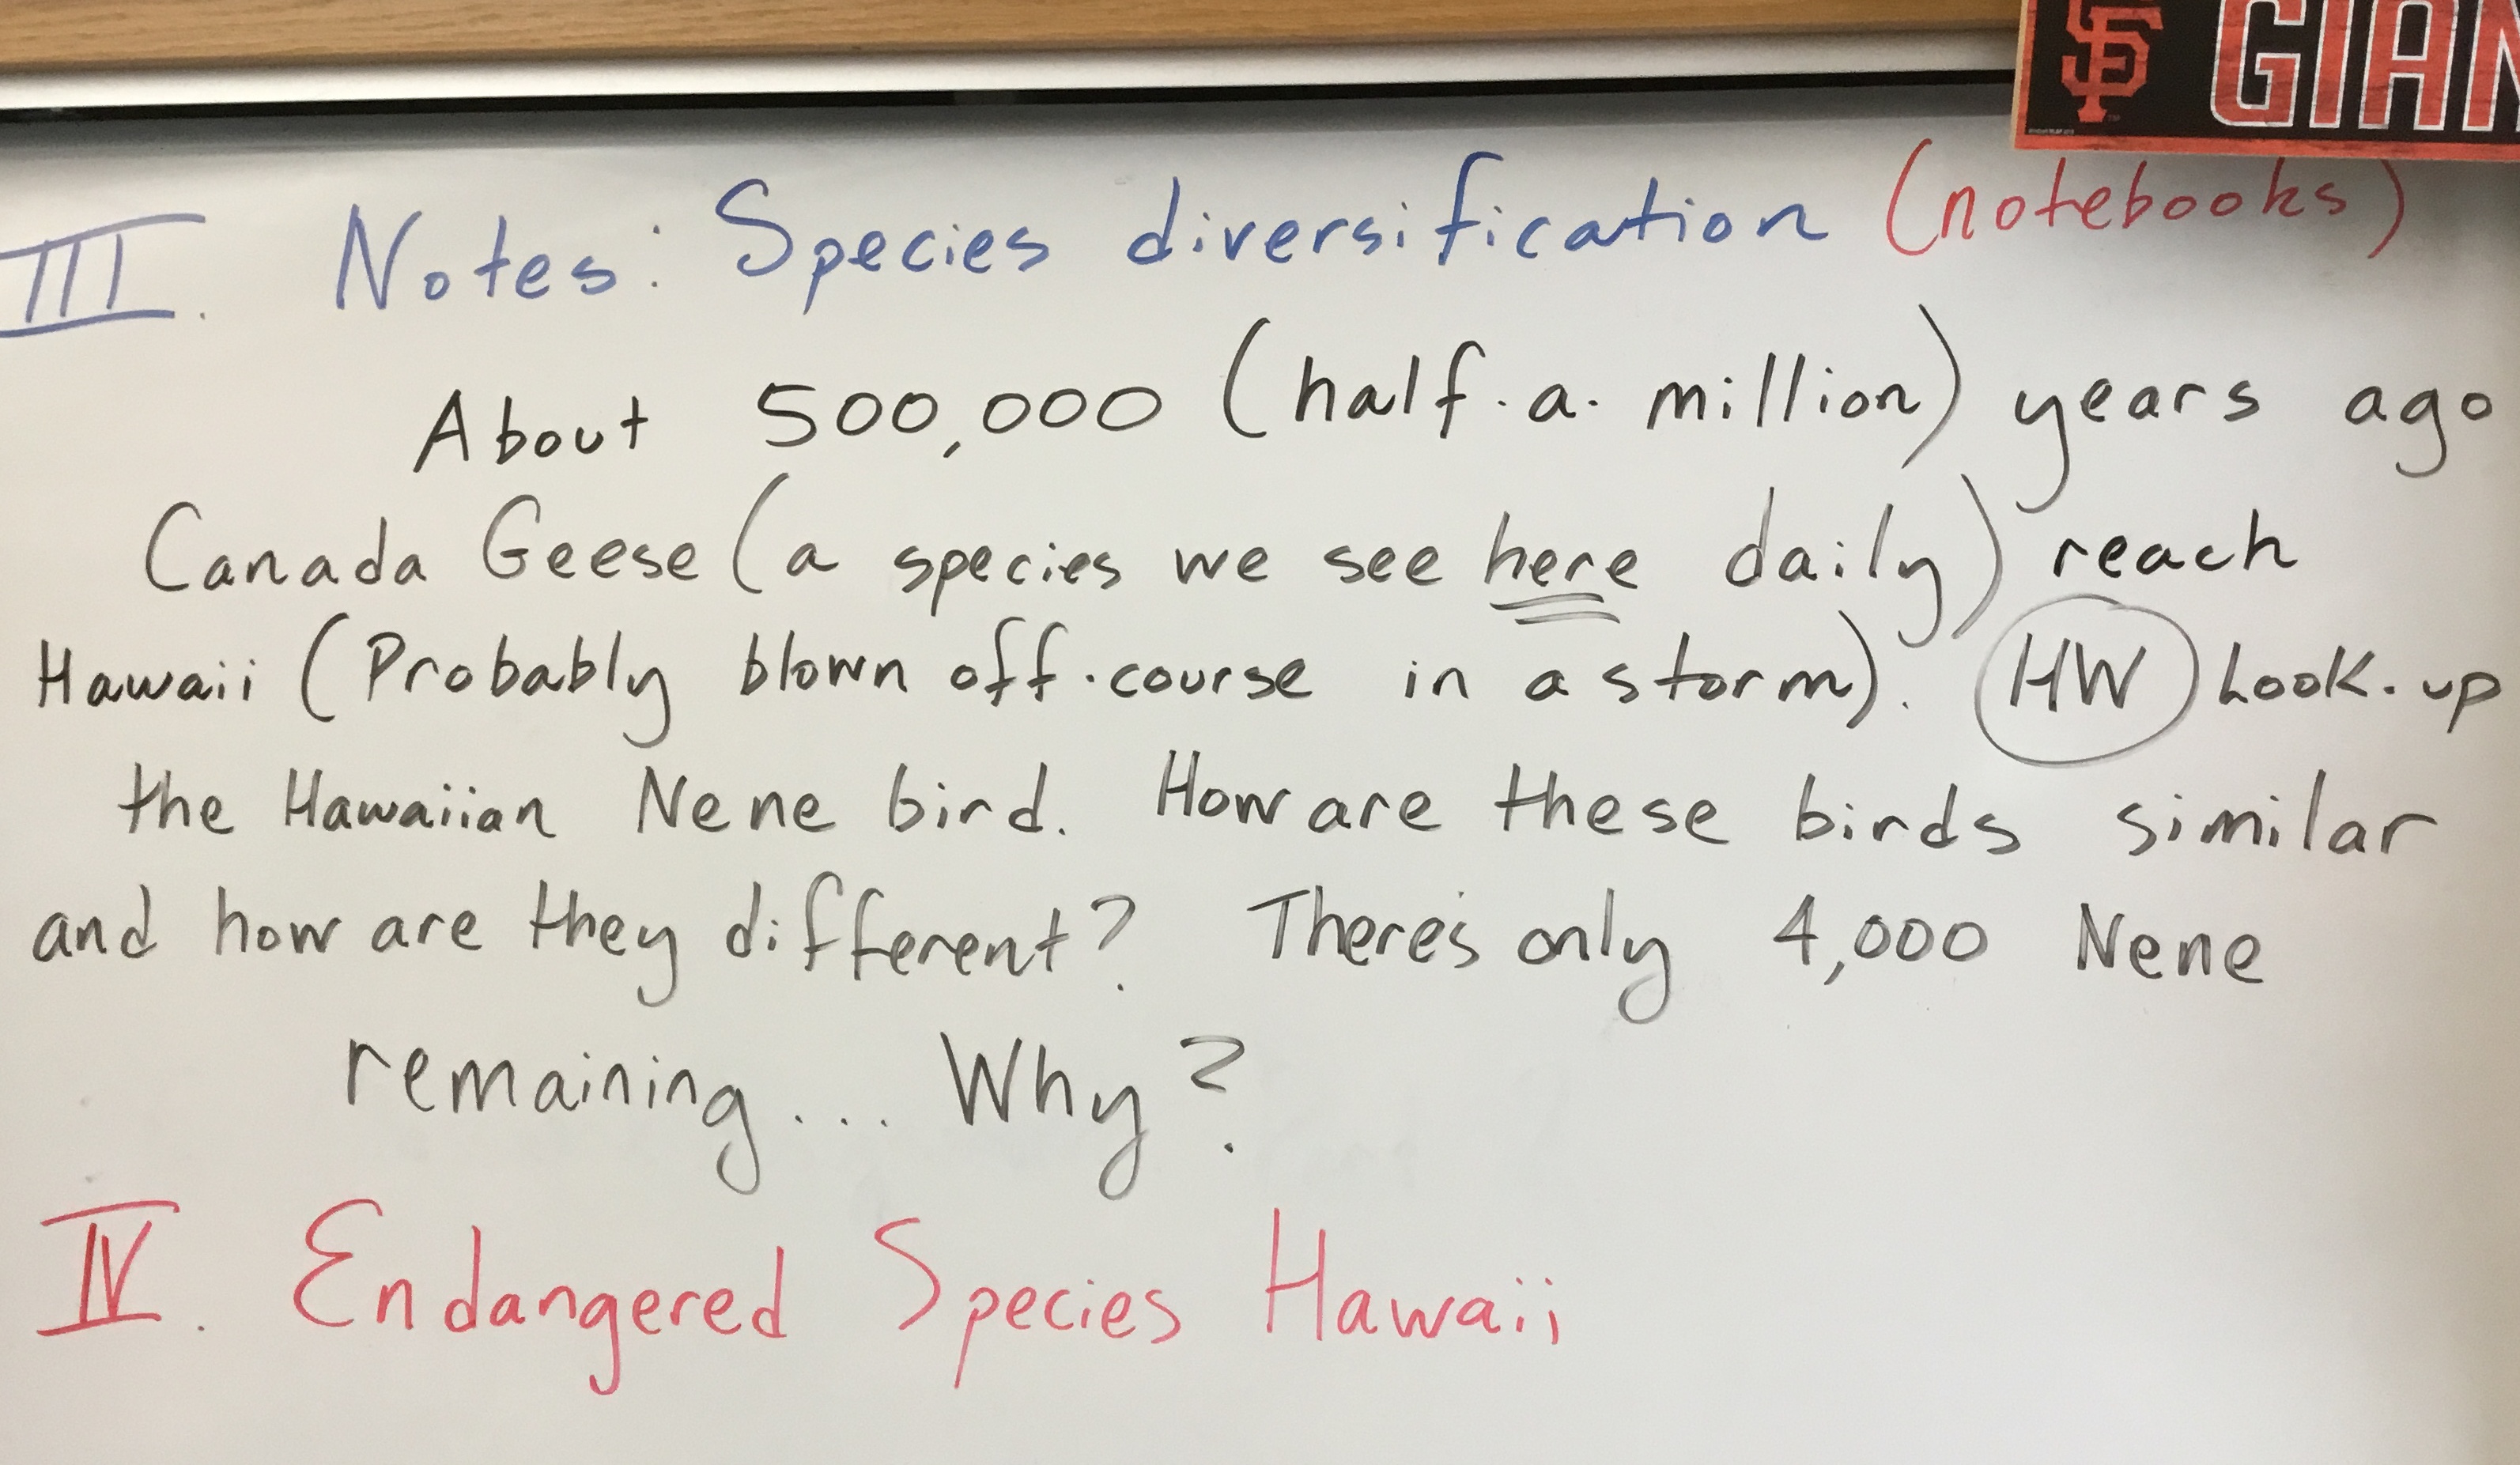 SF GIAN
III. Notes: Species diversification (notebooks)
About 500,000 (half-a-million) years ago
Canada Geese (a species we see here daily) reach
Hawaii (Probably blown off-course in a storm). HW Look-up
the Hawaiian Nene bird. How are these birds similar
and how are they different? There's only 4,000 Nene
remaining... Why?
IV. Endangered Species Hawaii